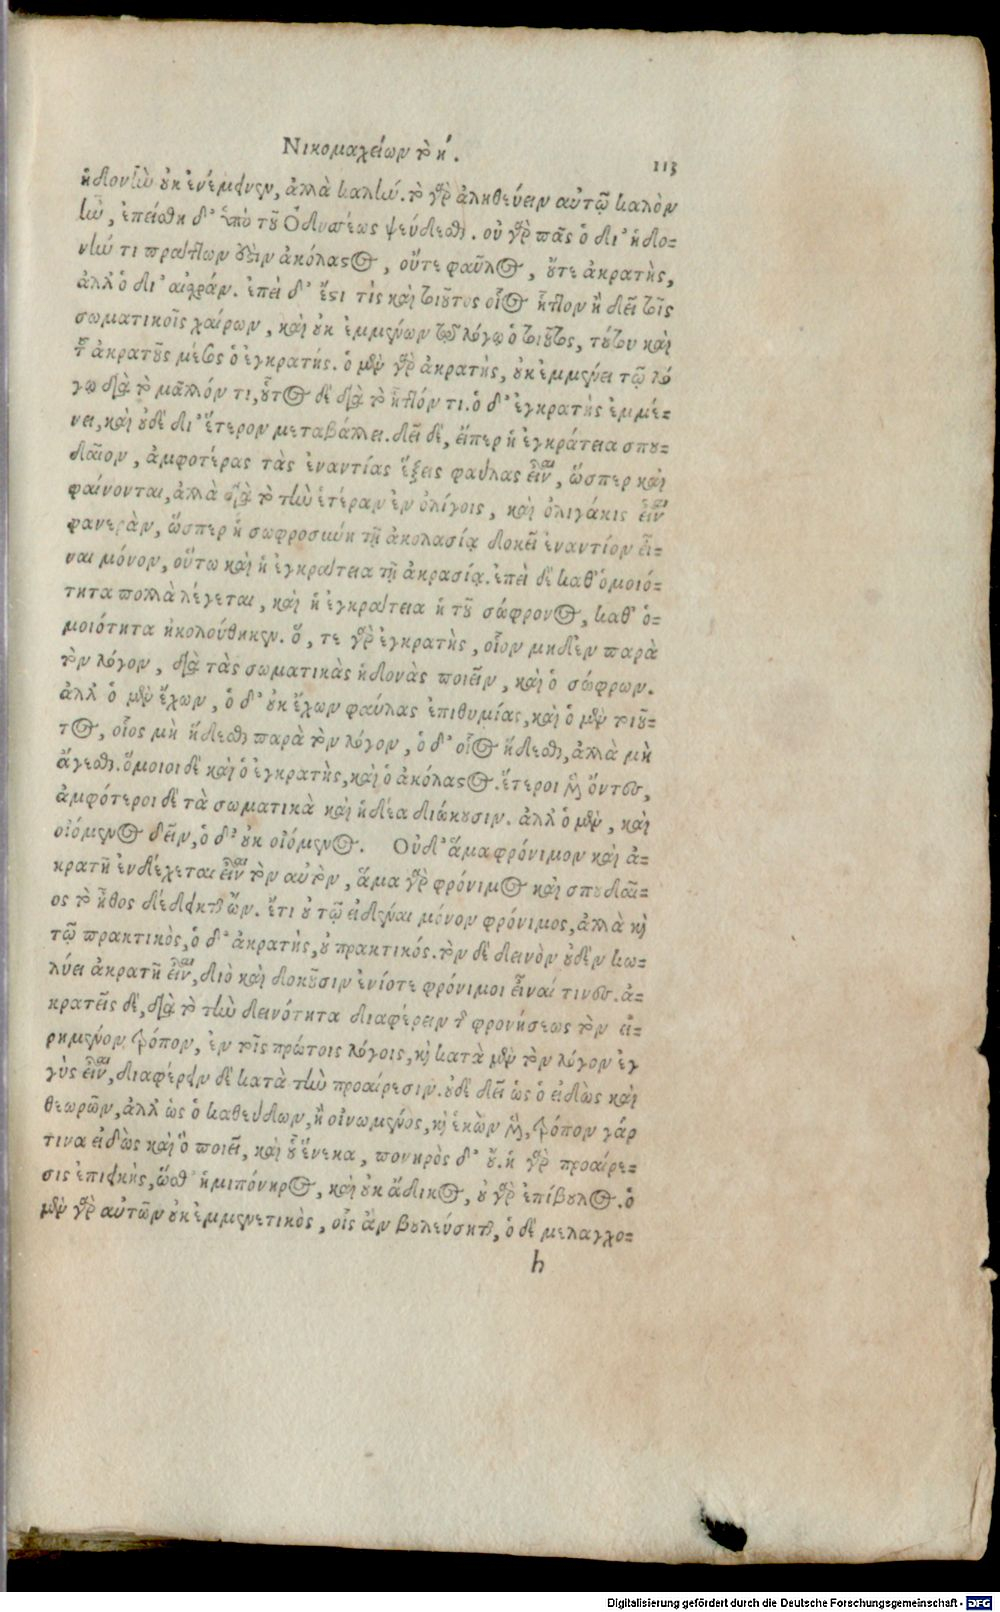 Νικομαχείων τὸ κ´.
113
ἡδονὴν οὐκ ἐνέμεινεν, ἀλλὰ καλήν. τὸ γὰρ ἀληθεύειν αὐτῷ καλὸν
ἦν, ἐπείσθη δ' ὑπὸ τοῦ Ὀδυσσέως ψεύδεσθαι. οὐ γὰρ πᾶς ὁ δι' ἡδο=
νήν τι πράττων οὐδὲν ἀκόλαστος, οὔτε φαῦλος, οὔτε ἀκρατὴς,
ἀλλ' ὁ δι' αἰσχράν. ἐπεὶ δ' ἔστι τὶς καὶ τοιοῦτος οἷος ἧττον ἢ δεῖ τοῖς
σωματικοῖς χαίρων, καὶ οὐκ ἐμμένων τῷ λόγῳ ὁ τοιοῦτος, τούτου καὶ
τοῦ ἀκρατοῦς μέσος ὁ ἐγκρατής. ὁ μὲν γὰρ ἀκρατὴς, οὐκ ἐμμένει τῷ λό
γῳ διὰ τὸ μᾶλλόν τι, οὗτος δὲ διὰ τὸ ἧττόν τι. ὁ δ' ἐγκρατὴς ἐμμέ=
νει, καὶ οὐδὲ δι' ἕτερον μεταβάλλει. δεῖ δὲ, εἴπερ ἡ ἐγκράτεια σπου=
δαῖον, ἀμφοτέρας τὰς ἐναντίας ἕξεις φαύλας εἶναι, ὥσπερ καὶ
φαίνονται, ἀλλὰ διὰ τὸ τὴν ἑτέραν ἐν ὀλίγοις, καὶ ὀλιγάκις εἶναι
φανερὰν, ὥσπερ ἡ σωφροσύνη τῇ ἀκολασίᾳ δοκεῖ ἐναντίον εἶ=
ναι μόνον, οὕτω καὶ ἡ ἐγκράτεια τῇ ἀκρασίᾳ. ἐπεὶ δὲ καθ' ὁμοιό=
τητα πολλὰ λέγεται, καὶ ἡ ἐγκράτεια ἡ τοῦ σώφρονος, καθ' ὁ=
μοιότητα ἠκολούθηκεν. ὅ, τε γὰρ ἐγκρατὴς, οἷον μηδὲν παρὰ
τὸν λόγον, διὰ τὰς σωματικὰς ἡδονὰς ποιεῖν, καὶ ὁ σώφρων.
ἀλλ' ὁ μὲν ἔχων, ὁ δ' οὐκ ἔχων φαύλας ἐπιθυμίας, καὶ ὁ μὲν τοιοῦ=
τος, οἷος μὴ ἥδεσθαι παρὰ τὸν λόγον, ὁ δ' οἷος ἥδεσθαι, ἀλλὰ μὴ
ἄγεσθαι. ὅμοιοι δὲ καὶ ὁ ἐγκρατὴς, καὶ ὁ ἀκόλαστος. ἕτεροι μὲν ὄντες,
ἀμφότεροι δὲ τὰ σωματικὰ καὶ ἡδέα διώκουσιν. ἀλλ' ὁ μὲν, καὶ
οἰόμενος δεῖν, ὁ δ' οὐκ οἰόμενος. Οὐδ' ἅμα φρόνιμον καὶ ἀ=
κρατῆ ἐνδέχεται εἶναι τὸν αὐτὸν, ἅμα γὰρ φρόνιμος καὶ σπουδαῖ=
ος τὸ ἦθος δέδεικται ὤν. ἔτι οὐ τῷ εἰδέναι μόνον φρόνιμος, ἀλλὰ καὶ
τῷ πρακτικὸς, ὁ δ' ἀκρατὴς, οὐ πρακτικός. τὸν δὲ δεινὸν οὐδὲν κω=
λύει ἀκρατῆ εἶναι, διὸ καὶ δοκοῦσιν ἐνίοτε φρόνιμοι εἶναί τινες. ἀ=
κρατεῖς δὲ, διὰ τὸ τὴν δεινότητα διαφέρειν τῆς φρονήσεως τὸν εἰ=
ρημένον τρόπον, ἐν τοῖς πρώτοις λόγοις, καὶ κατὰ μὲν τὸν λόγον ἐγ
γὺς εἶναι, διαφέρειν δὲ κατὰ τὴν προαίρεσιν. οὐδὲ δεῖ ὡς ὁ εἰδὼς καὶ
θεωρῶν, ἀλλ' ὡς ὁ καθεύδων, ἢ οἰνωμένος, καὶ ἑκὼν μὲν, τρόπον γάρ
τινα εἰδὼς καὶ ὃ ποιεῖ, καὶ οὗ ἕνεκα, πονηρὸς δ' οὔ. ἡ γὰρ προαίρε=
σις ἐπιεικὴς, ὥσθ' ἡμιπόνηρος, καὶ οὐκ ἄδικος, οὐ γὰρ ἐπίβουλος. ὁ
μὲν γὰρ αὐτῶν οὐκ ἐμμενετικὸς, οἷς ἂν βουλεύσηται, ὁ δὲ μελαγχο=
h
Digitalisierung gefördert durch die Deutsche Forschungsgemeinschaft - DFG